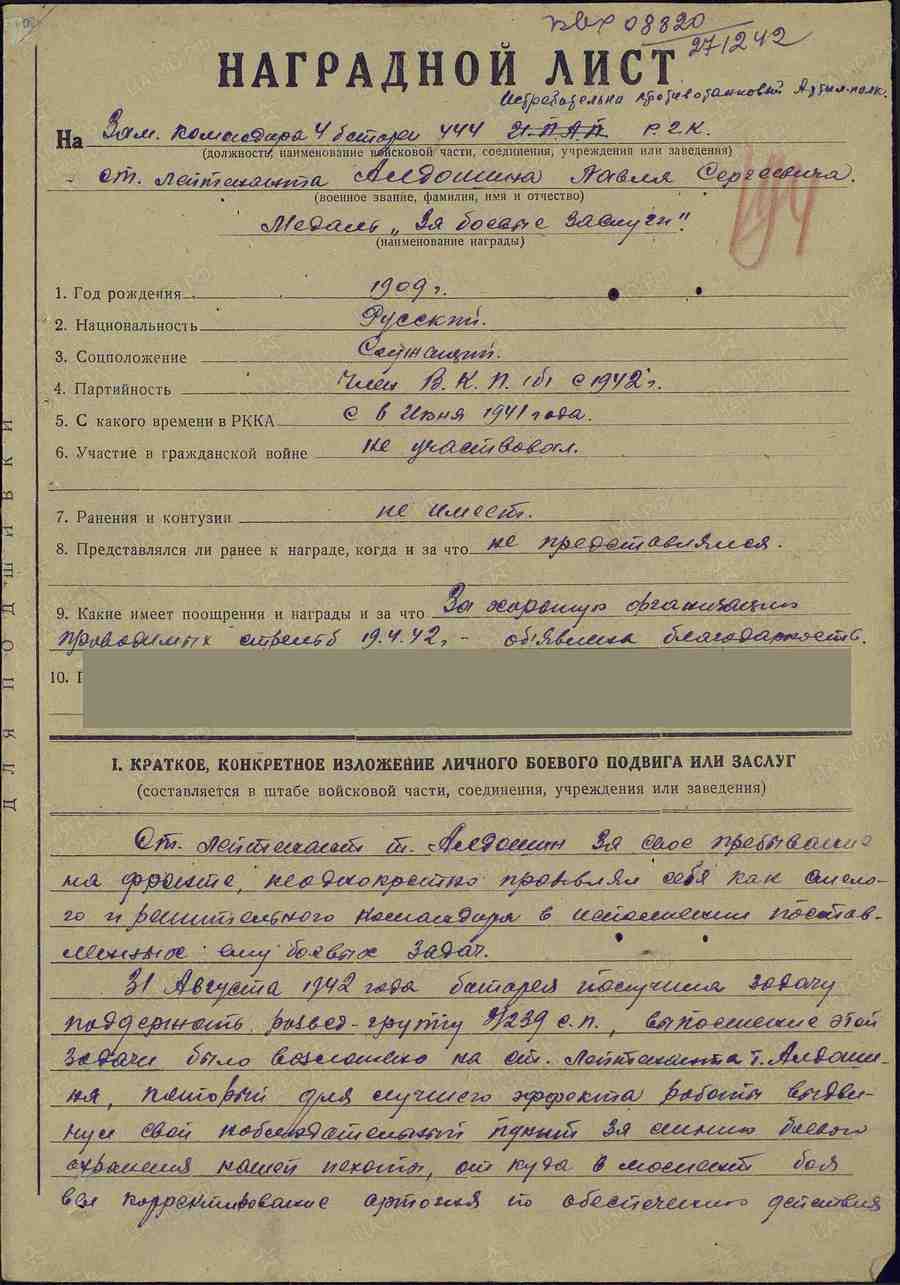 вх 08820
271242
НАГРАДНОЙ ЛИСТ
Истребительно противотанковый Артил. полк.
На Зам. командира 4 батареи 444 И.П.А.П. Р.Г.К.
(должность, наименование войсковой части, соединения, учреждения или заведения)
ст. лейтенанта Алдошина Павла Сергеевича.
(военное звание, фамилия, имя и отчество)
Медаль „За боевые заслуги".
(наименование награды)
1. Год рождения 1909 г.
2. Национальность Русский.
3. Соцположение Служащий.
4. Партийность Член В.К.П.(б) с 1942 г.
5. С какого времени в РККА с Июня 1941 года.
6. Участие в гражданской войне не участвовал.
7. Ранения и контузии не имеет.
8. Представлялся ли ранее к награде, когда и за что не представлялся.
9. Какие имеет поощрения и награды и за что За хорошую организацию
проводимых стрельб 19.4.42 г. - объявлена благодарность.
10.
ДЛЯ ПОДШИВКИ
I. КРАТКОЕ, КОНКРЕТНОЕ ИЗЛОЖЕНИЕ ЛИЧНОГО БОЕВОГО ПОДВИГА ИЛИ ЗАСЛУГ
(составляется в штабе войсковой части, соединения, учреждения или заведения)
Ст. лейтенант т. Алдошин за свое пребывание
на фронте, неоднократно проявлял себя как смело-
го и решительного командира в исполнении постав-
ленных ему боевых задач.
31 Августа 1942 года батарея получила задачу
поддержать развед-группу 239 с.п., выполнение этой
задачи было возложено на ст. лейтенанта т. Алдоши-
на, который для лучшего эффекта работы выдви-
нул свой наблюдательный пункт за линию боевого
охранения нашей пехоты, от куда в момент боя
вел корректирование артогня по обеспечению действия